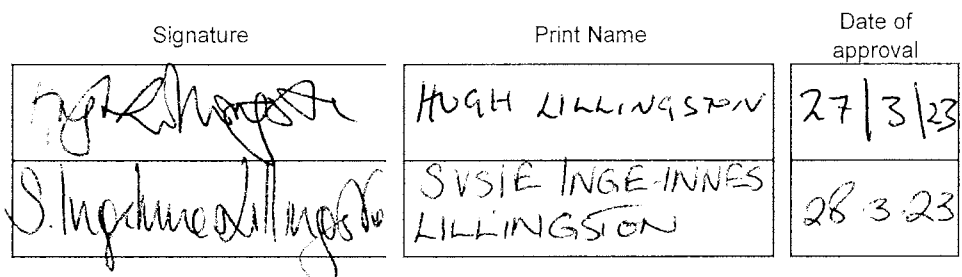 Signature Print Name Date of
approval
Hugh Lillingston HUGH LILLINGSTON 27/3/23
S. Inge-Innes Lillingston SUSIE INGE-INNES
LILLINGSTON 28.3.23